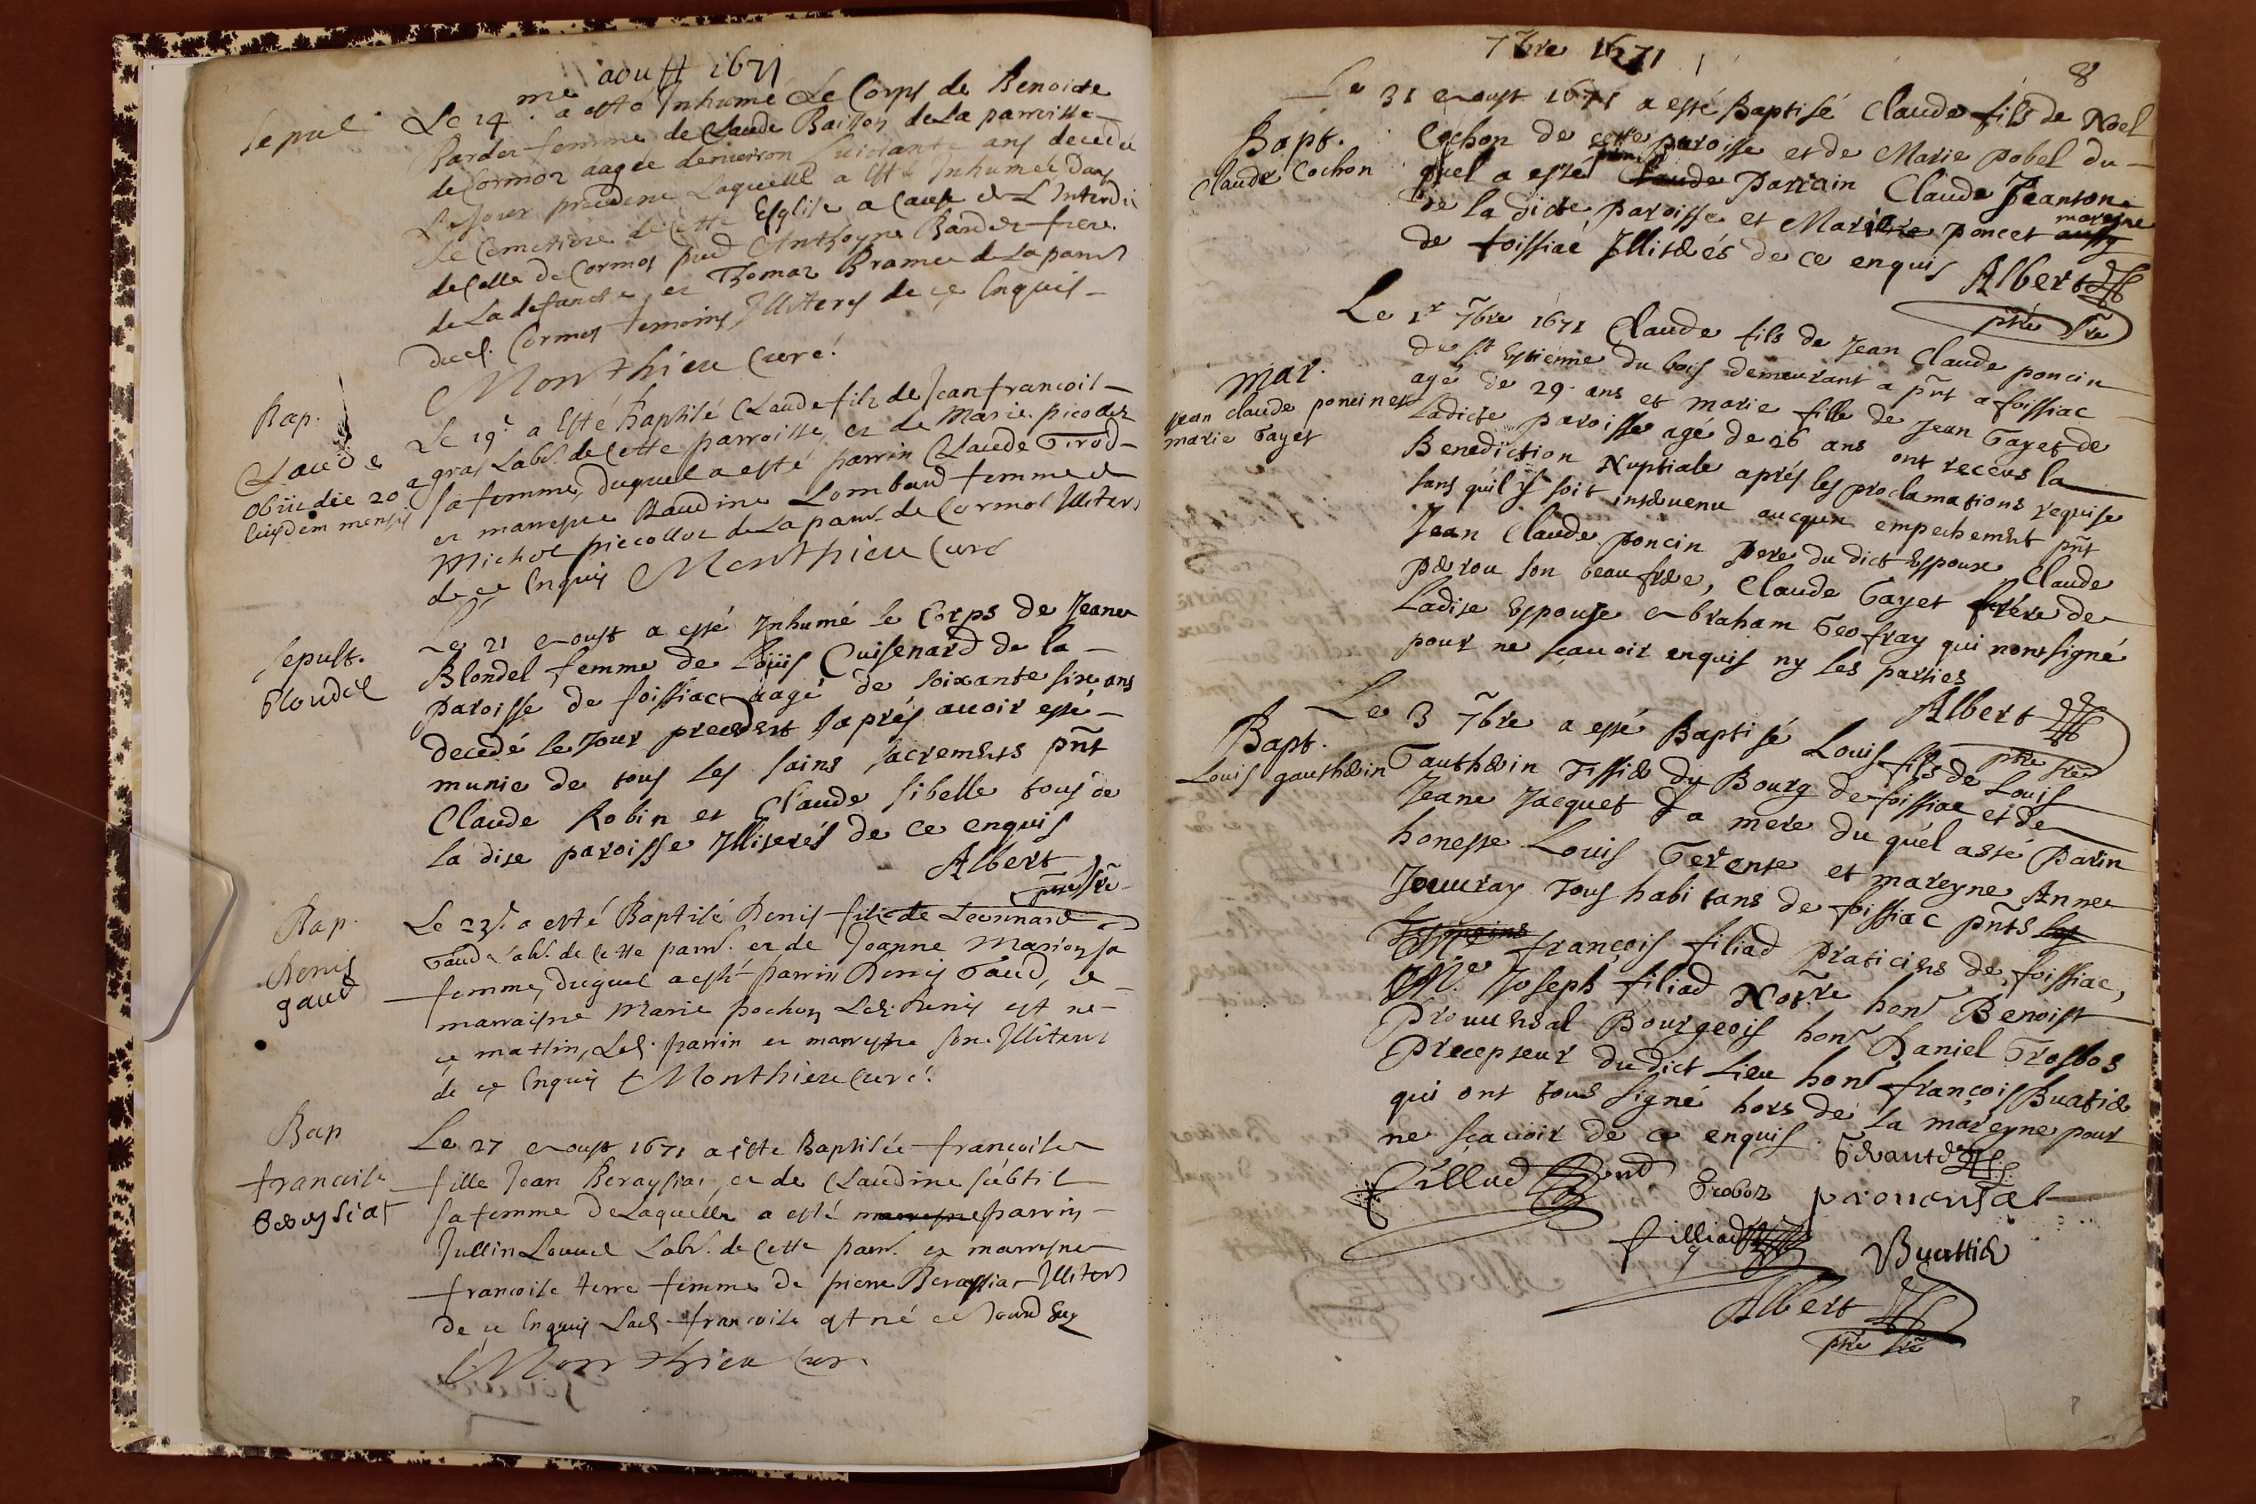 aoust 1671
Sepul.
Le 14.me a esté Inhumé Le Corps de Benoite
Bardet femme de Claude Baillon de La parroisse
de Cormoz aagée denviron Huictante ans decedée
Le Jour precedent Laquelle a esté Inhumée dans
Le Cemetiere de Cette Esglise a Cause de L'Interdit
de Celle de Cormoz pnt Anthoyne Bardet frere
de La defuncte et Thomas Brame de La parr.
dud. Cormoz temoins Illiterés de ce Enquis
Monthieu Curé
Bap.
Claude
Obiit die 20
Eiusdem mensis
Le 19e a Esté Baptisé Claude filz de Jean francois
gras Lab.r de Cette parroisse et de Marie picodet
sa femme, duquel a esté parrin Claude Tirod
et marreyne Claudine Lombard femme de
Michel piccollot de La parr. de Cormoz Illiterés
de ce Enquis Monthieu Curé
Sepult.
Blondel
Le 21 Aoust a esté Inhumé le Corps de Jeane
Blondel femme de Louis Cuisenard de la
paroisse de foissiac aagé de soixante six ans
decedé le Jour precedent Japrés avoir esté
munie de tous les sains sacrements pñt
Claude Robin et Claude sibelle tous de
la dite paroisse Illiterés de ce enquis
Albert
pñtre vre
Bap.
Denis
gaud
Le 23e a esté Baptisé Denis filz de Leonnard
Gaud Lab.r de Cette parr. et de Joanne Marion sa
femme, duquel a esté parrin Denis Gaud, et
marraisne Marie pochon Led. Denis est né
ce mattin, Led. parrin et marreyne son Illiterés
de ce Enquis Monthieu Curé.
Bap
francoise
Beraysiat
Le 27 Aoust 1671 a esté Baptisée francoise
fille Jean Beraysiat, et de Claudine subtil
sa femme De Laquelle a esté marreyne parrin
Jullin Louvel Lab.r de Cette parr. et marreyne
francoise terre femme de pierre Beraysiat Illiterés
de ce Enquis Lad. francoise est né ce Jourd'huy
Monthieu Cur.
7bre 1671
8
Bapt.
Claude Cochon
Le 31 Aoust 1671 a esté Baptisé Claude fils de Noel
Cochon de cette paroisse et de Marie pobel du
quel a esté Claude Parrain Claude Jeanton
de la dicte paroisse et Marie poncet aussy mareyne
de foissiac Illiterés de ce enquis
Albert
ptre vre
Mar.
Jean Claude poncin et
marie Gayet
Le 1r 7bre 1671 Claude fils de Jean Claude poncin
de st Estienne du bois demeurant a pñt a foissiac
agé de 29 ans et marie fille de Jean Gayet de
Ladicte paroisse agé de 26 ans ont receus la
Benediction Nuptiale aprés les proclamations requise
sans quil y soit intervenu aucqun empechement pñt
Jean Claude poncin pere du dict Espoux Claude
perrou son beaufrere, Claude Gayet frére de
Ladite Espouse Abraham Geofray qui nont signé
pour ne sçauoir enquis ny les parties
Albert
ptre vre
Bapt.
Louis gautherin
Le 3 7bre a esté Baptisé Louis fils de Louis
Gautherin Tissier du Bourg de foissiac et de
Jeane Jacquet sa mere du quel a esté parin
honeste Louis Gerente et mareyne Anne
Jouuray Tous habitans de foissiac pñts les
Temoins
Me françois filiad praticiens de foissiac,
Me. Joseph filiad Nor.re hon. Benoist
Prouensal Bourgeois hon. Daniel Trosbos
Precepteur dudict Lieu hon. françois Buatier
qui ont tous signé hors de la mareyne pour
ne sçauoir de ce enquis.
Filliad
Trobos
prouensal
filliad
Buattier
Albert
ptre vre